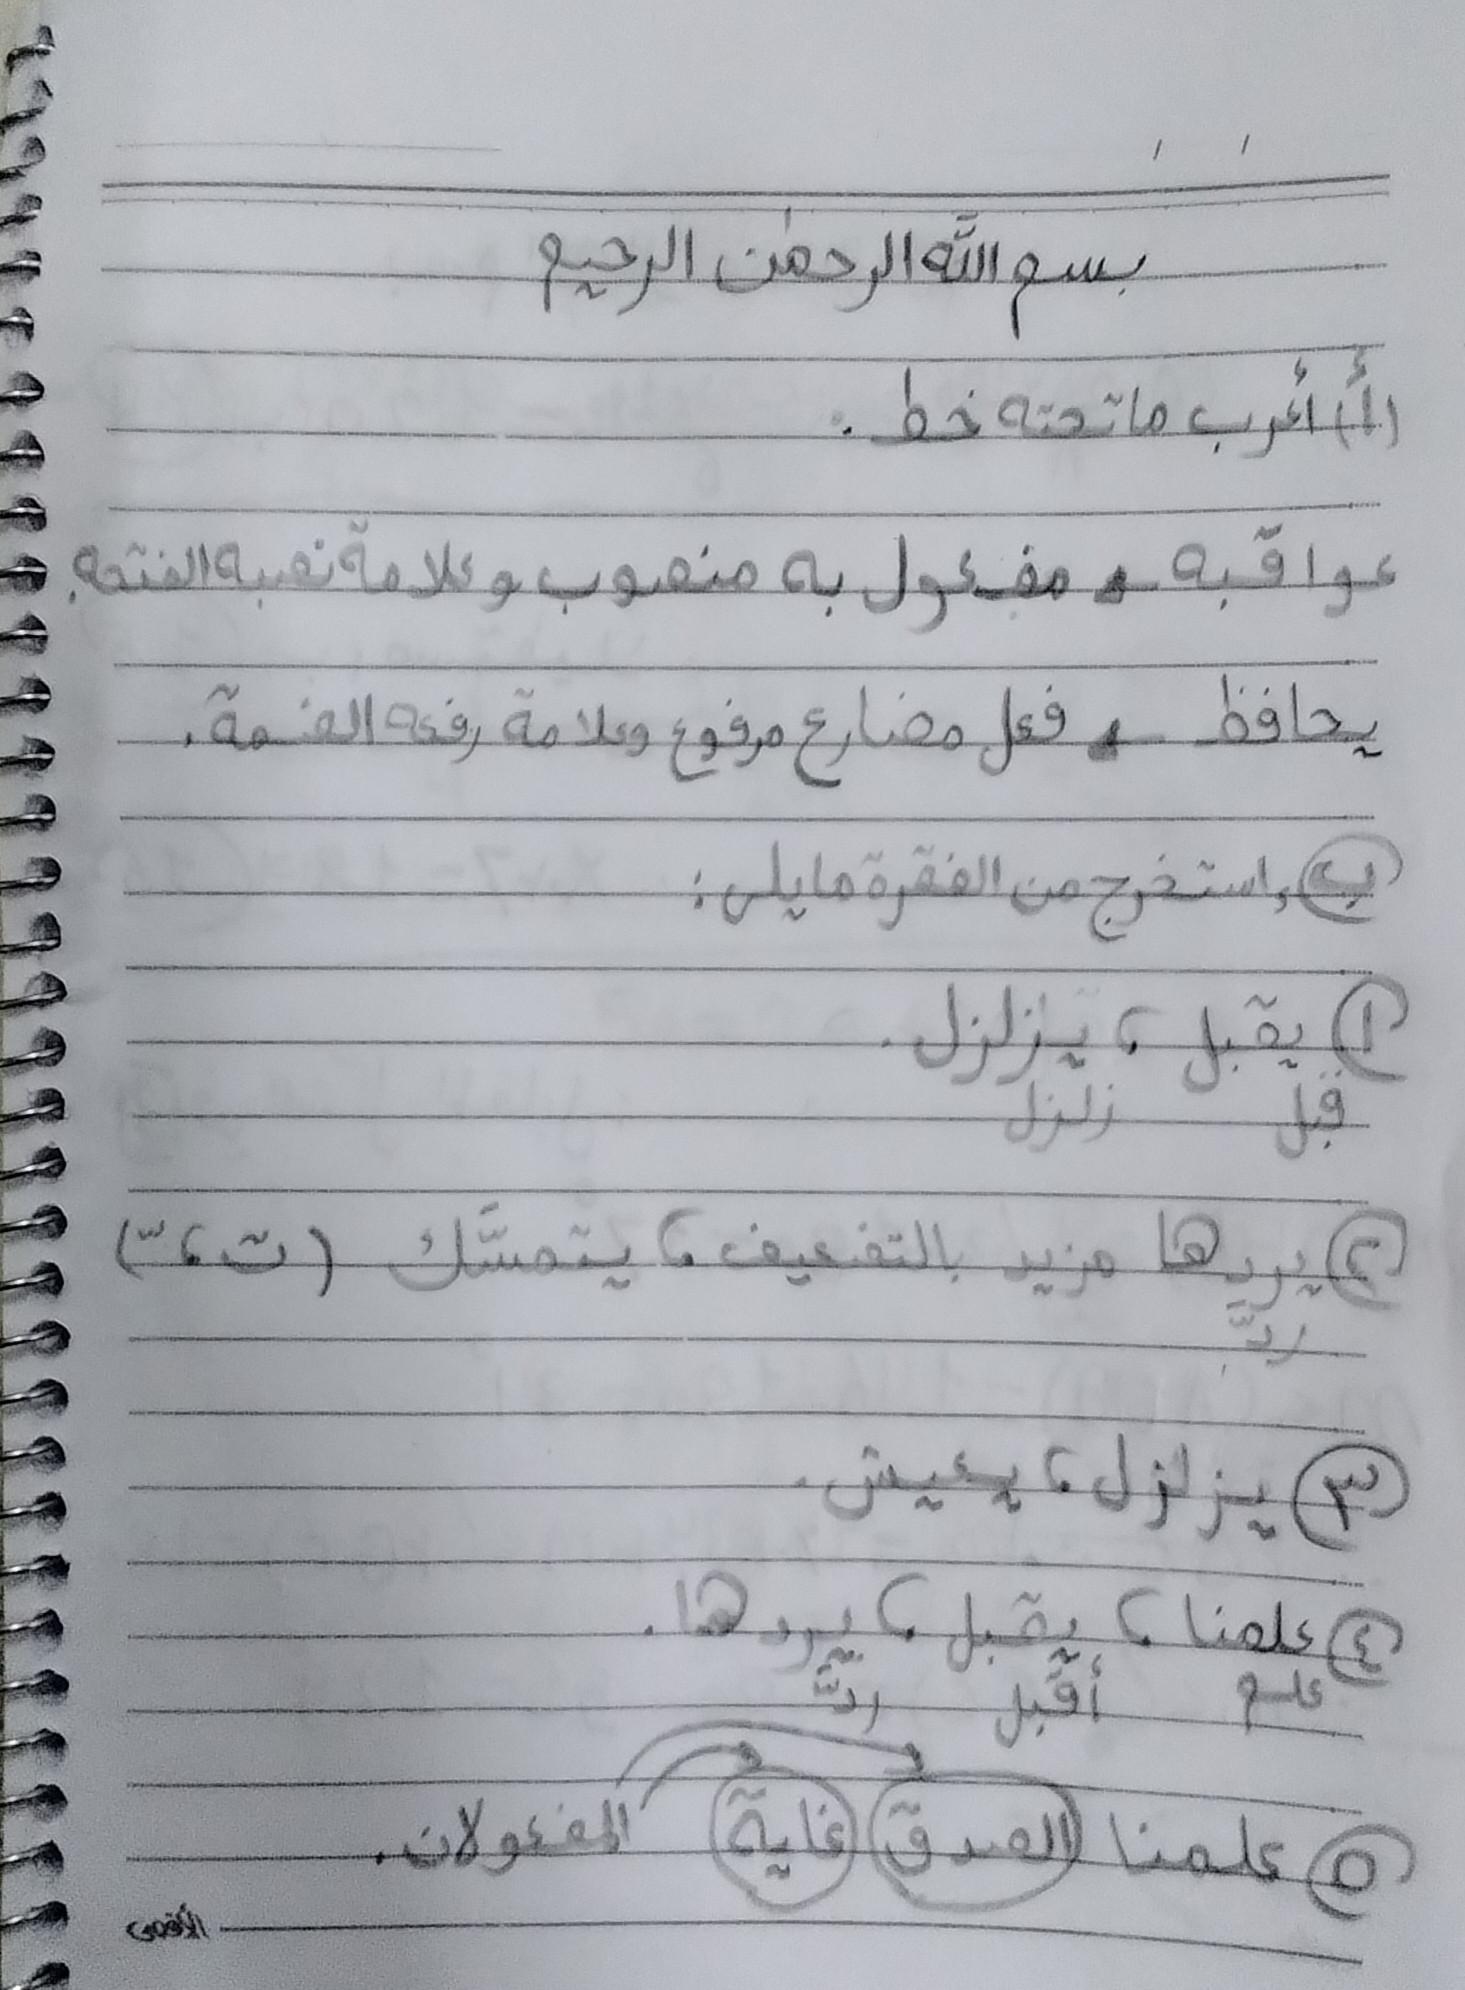 بسم الله الرحمٰن الرحيم
(أ) أعرب ما تحته خط :
عواقبه ، مفعول به منصوب وعلامة نصبه الفتحه.
يحافظ ، فعل مضارع مرفوع وعلامة رفعه الضمة.
ب استخرج من الفقرة ما يلي :
١ يقبل ، يزلزل .
قبل زلزل
٢ يردها مزيد بالتضعيف ، يتمسَّك ( ت ، ّ )
ردَّ
٣ يزلزل ، يعيش .
٤ علمنا ، يقبل ، يردها .
علم أقبل ردَّ
٥ علمنا الصدق غاية المفعولان .
الأقصى